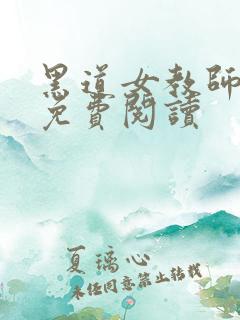 黑道女教師
免費閱讀
夏璃心
未经同意禁止转载